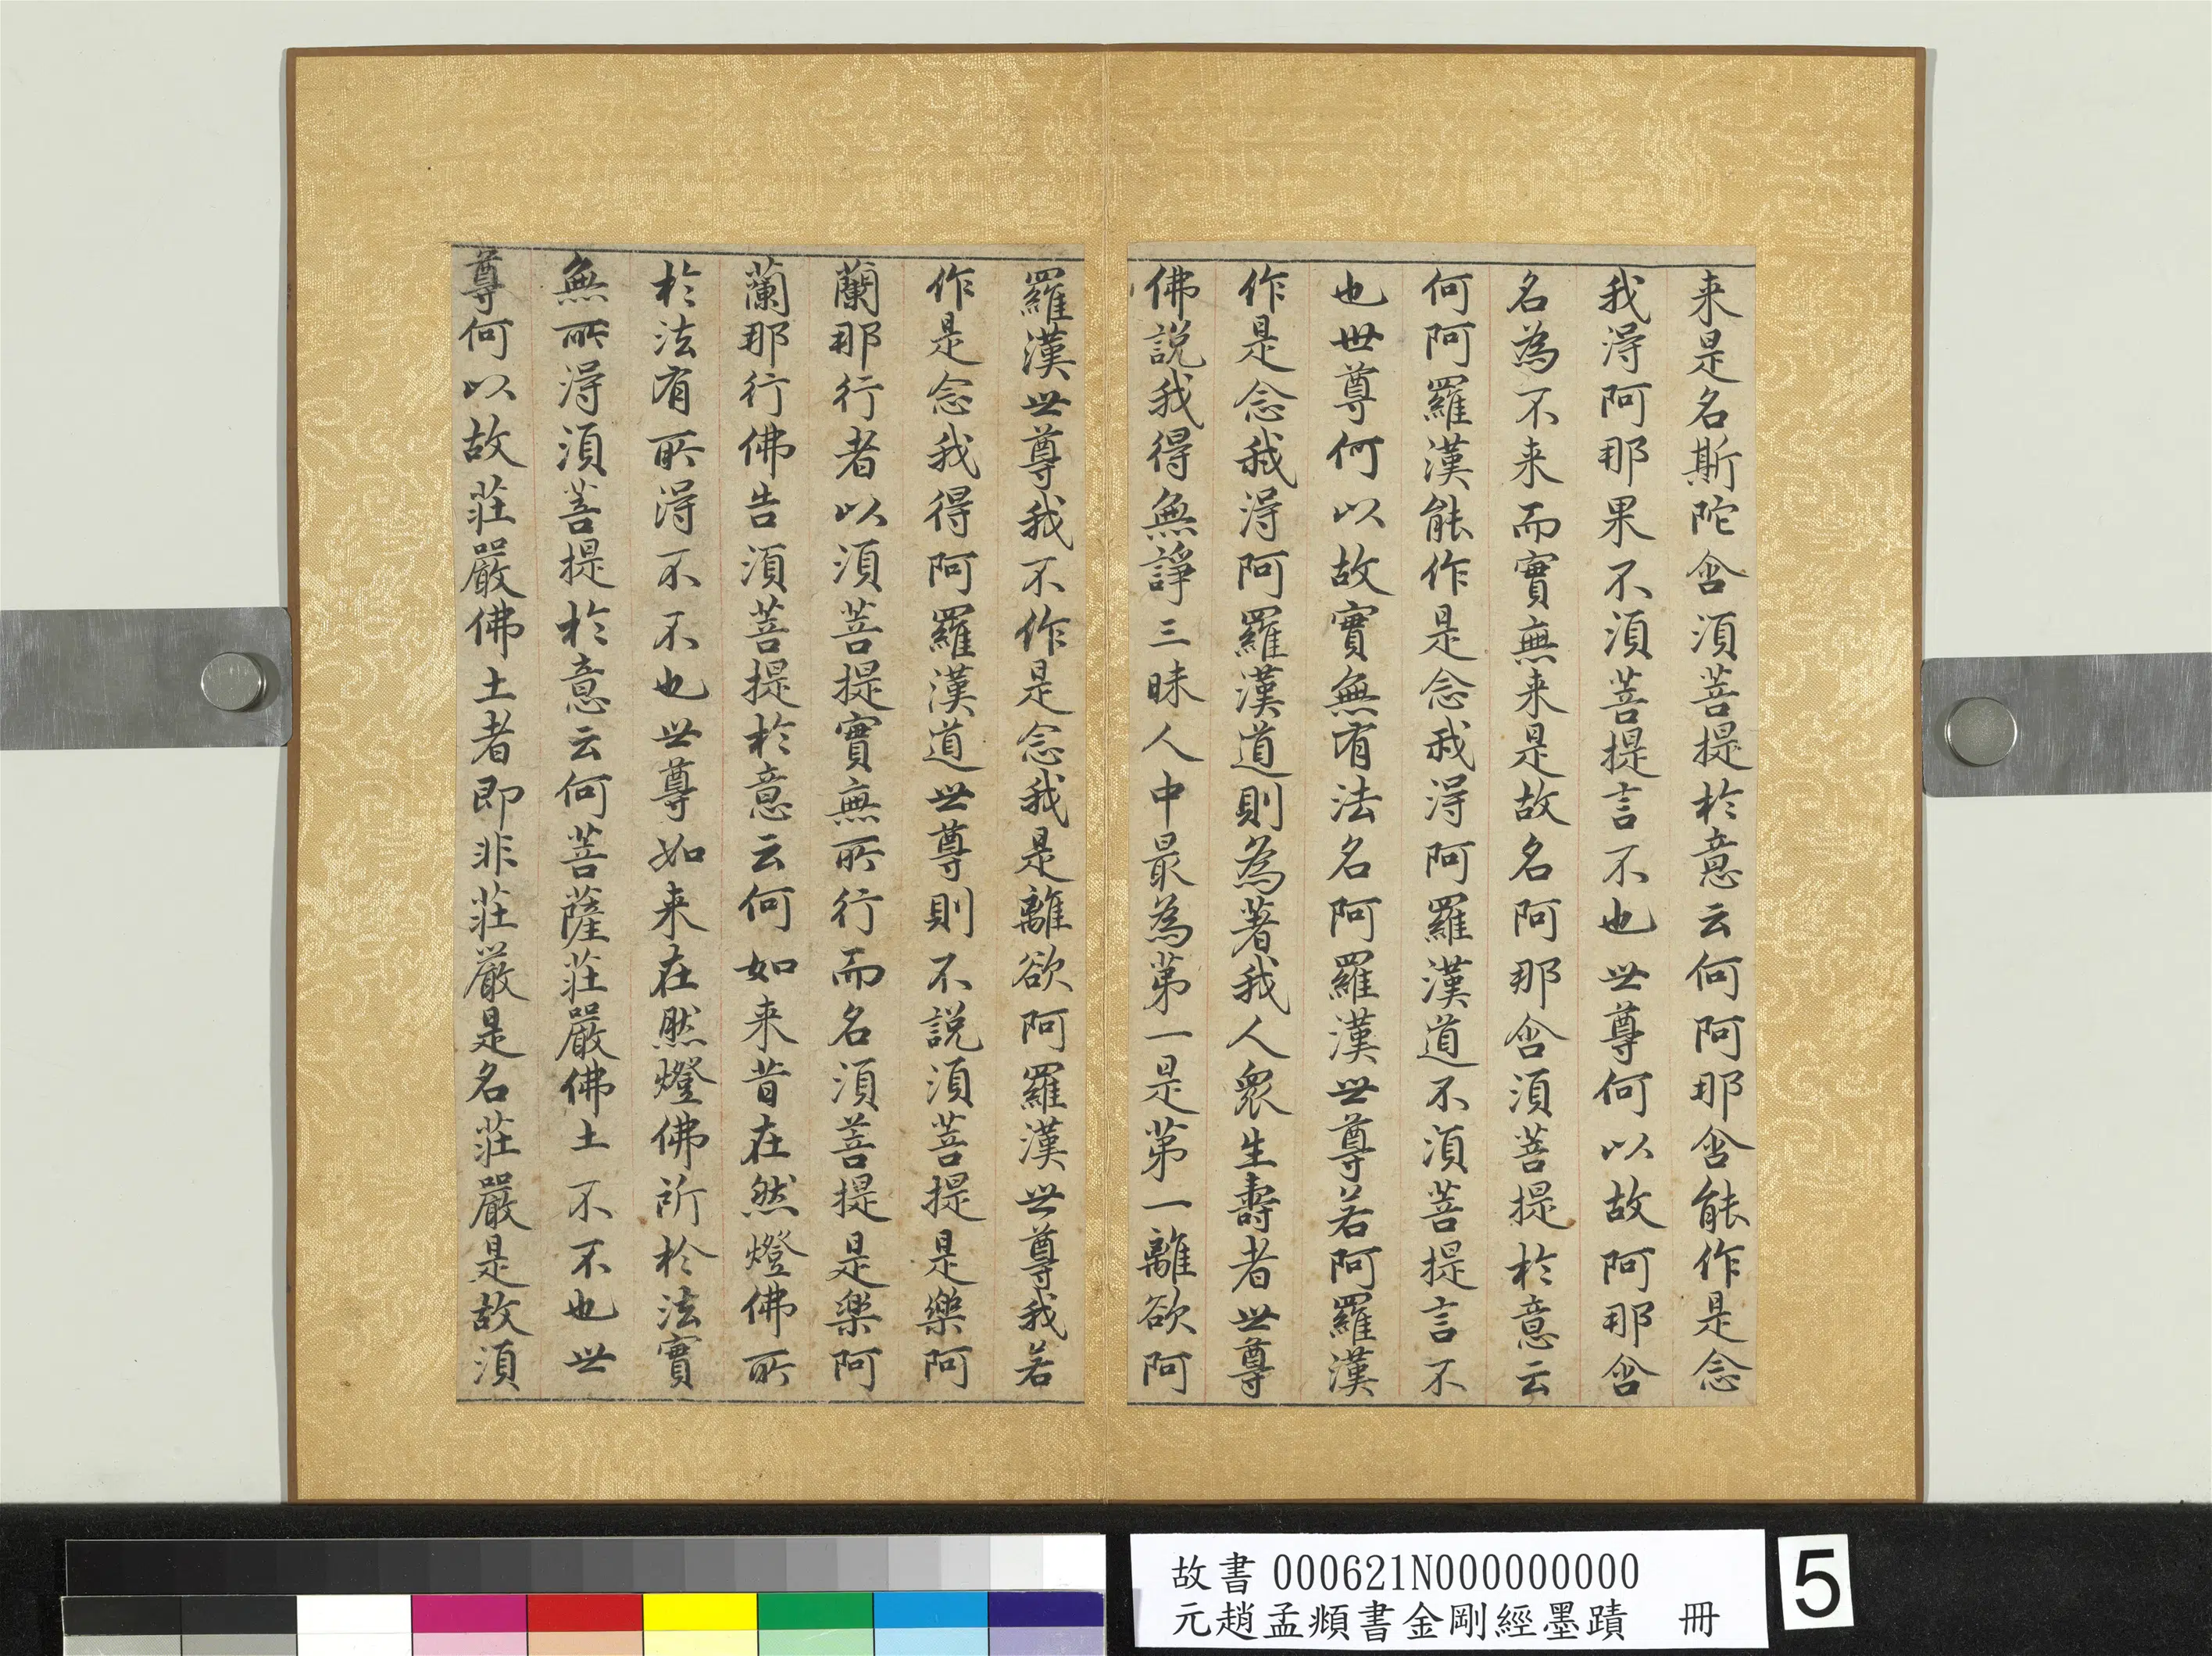 来是名斯陀含須菩提於意云何阿那含能作是念
我淂阿那果不須菩提言不也世尊何以故阿那含
名為不来而實無来是故名阿那含須菩提於意云
何阿羅漢能作是念我淂阿羅漢道不須菩提言不
也世尊何以故實無有法名阿羅漢世尊若阿羅漢
作是念我淂阿羅漢道則為著我人衆生壽者世尊
佛説我得無諍三昧人中最為第一是第一離欲阿
羅漢世尊我不作是念我是離欲阿羅漢世尊我若
作是念我得阿羅漢道世尊則不説須菩提是樂阿
蘭那行者以須菩提實無所行而名須菩提是樂阿
蘭那行佛告須菩提於意云何如来昔在然燈佛所
於法有所淂不不也世尊如来在然燈佛所於法實
無所淂須菩提於意云何菩薩莊嚴佛土不不也世
尊何以故莊嚴佛土者即非莊嚴是名莊嚴是故須
故書 000621N000000000
元趙孟頫書金剛經墨蹟 冊
5